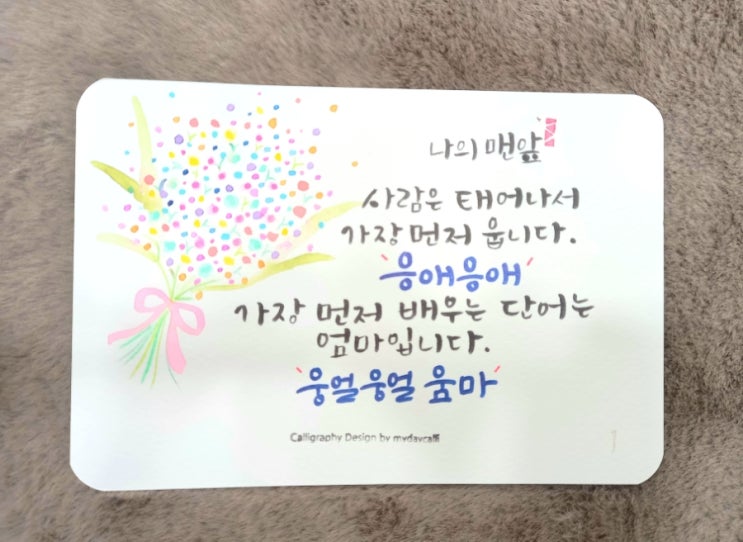 나의 맨앞
사람은 태어나서
가장 먼저 웁니다.
응애응애
가장 먼저 배우는 단어는
엄마입니다.
웅얼웅얼 움마
Calligraphy Design by mydaycalli